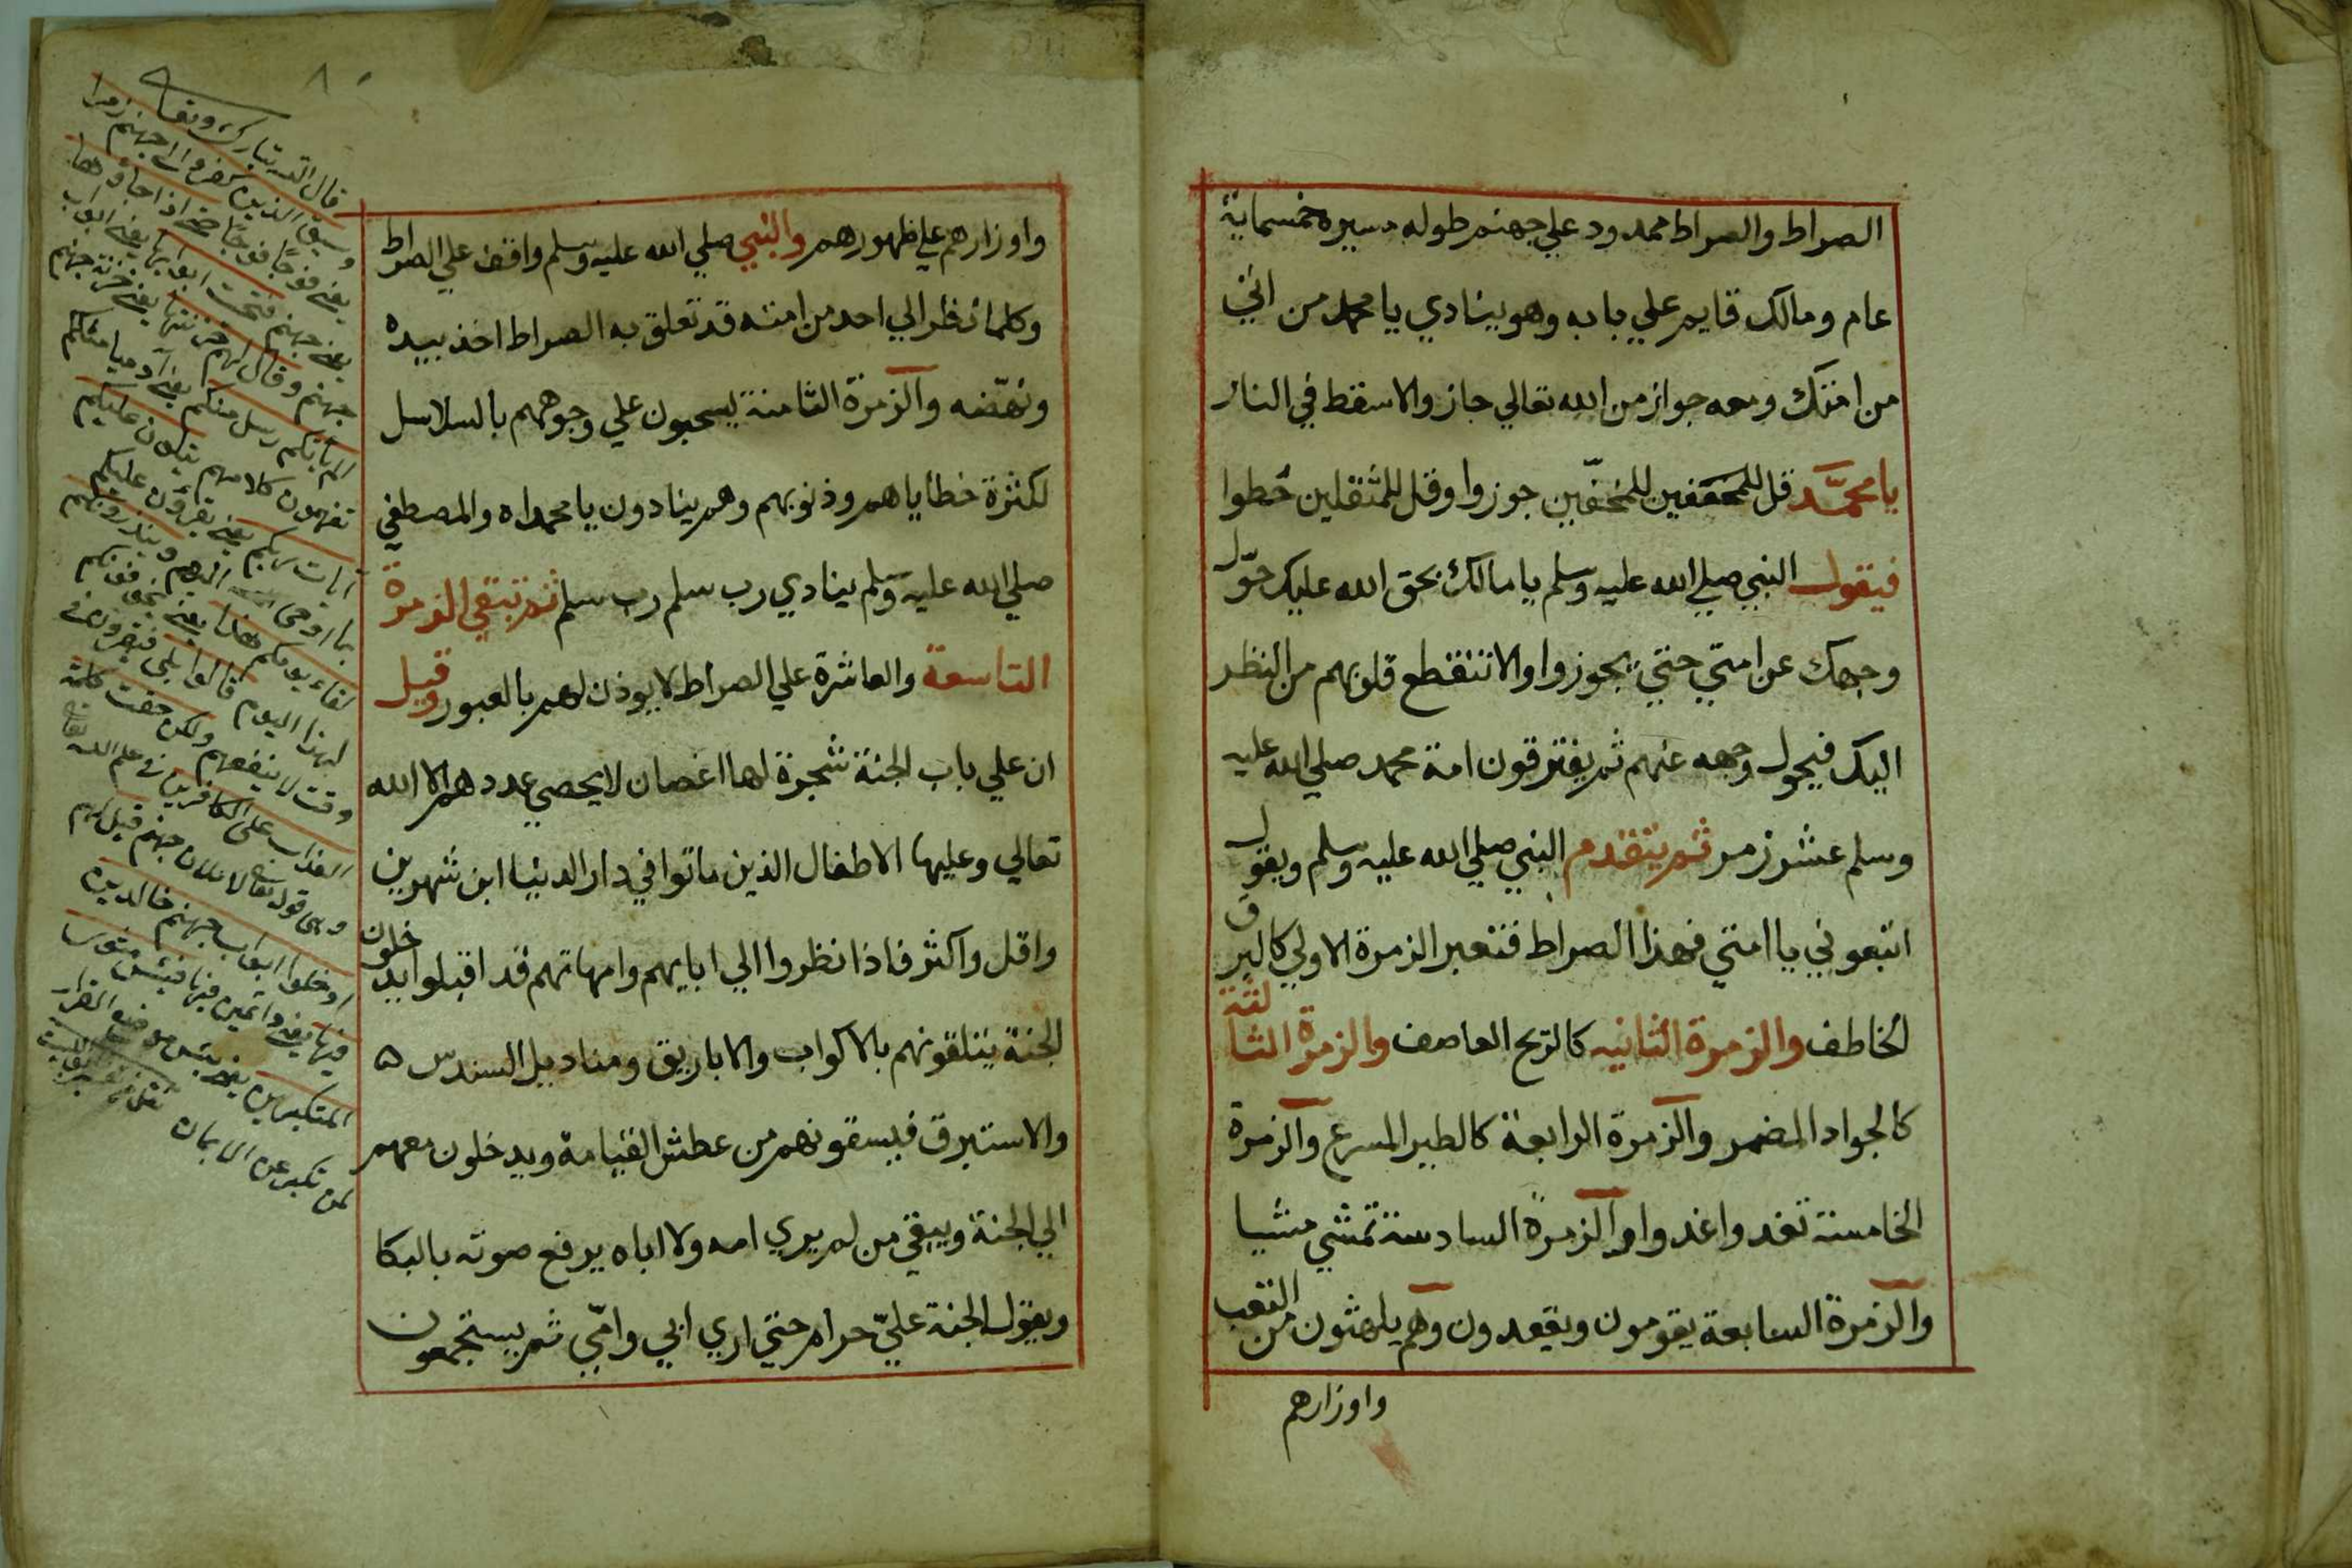 الصراط والصراط ممدود علي جهنم طوله مسيرة خمسماية
عام ومالك قايم علي بابه وهو ينادي يا محمد من اتي
من امتك ومعه جواز من الله تعالي جاز والا سقط في النار
يا محمد قل للمخففين للمخفّين جوزوا وقل للمثقلين حُطوا
فيقول النبي صلي الله عليه وسلم يا مالك بحق الله عليك حوّل
وجهك عن امتي حتي يجوزوا والا تنقطع قلوبهم من النظر
اليك فيحول وجهه عنهم ثم يفترقون امة محمد صلي الله عليه
وسلم عشر زمر ثم يتقدم النبي صلي الله عليه وسلم ويقول
اتبعوني يا امتي فهذا الصراط فتعبر الزمرة الاولي كالبرق
الخاطف والزمرة الثانيه كالريح العاصف والزمرة الثالثة
كالجواد المضمر والزمرة الرابعة كالطير المسرع والزمرة
الخامسة تغدوا غدوا والزمرة السادسة تمشي مشيا
والزمرة السابعة يقومون ويقعدون وهم يلهثون من التعب
واوزارهم
٨٠
واوزارهم علي ظهورهم والنبي صلي الله عليه وسلم واقف علي الصراط
وكلما نظر الي احد من امته قد تعلق به الصراط اخذ بيده
ونهّضه والزمرة الثامنة يسحبون علي وجوههم بالسلاسل
لكثرة خطاياهم وذنوبهم وهم ينادون يا محمداه والمصطفي
صلي الله عليه وسلم ينادي رب سلم رب سلم ثم تبقي الزمرة
التاسعة والعاشرة علي الصراط لا يوذن لهم بالعبور وقيل
ان علي باب الجنة شجرة لها اغصان لا يحصي عددهم الا الله
تعالي وعليها الاطفال الذين ماتوا في دار الدنيا ابن شهرين
واقل واكثر فاذا نظروا الي ابايهم وامهاتهم قد اقبلوا يدخلون
الجنة يتلقونهم بالاكواب والاباريق ومناديل السندس ه
والاستبرق فيسقونهم من عطش القيامة ويدخلون معهم
الي الجنة ويبقي من لم يري امه ولا اباه يرفع صوته بالبكا
ويقول الجنة عليّ حرام حتي اري ابي وامّي ثم يستجمعون
قال الله تبارك وتعالى
وسيق الذين كفروا الى جهنم زمرا
يعنى فوجًا فوجًا حتى اذا جاؤها
يعنى جهنم فتحت ابوابها يعنى ابواب
جهنم وقال لهم خزنتها يعنى خزنة جهنم
الم ياتكم رسل منكم يعنى آدميا مثلكم
تفهمون كلامهم يتلون عليكم
آيات ربكم يعنى يقرؤن عليكم
بما اوحى اليهم وينذرونكم
لقاء يومكم هذا يعنى يخوفونكم
لهذا اليوم قالوا بلى فيقرون فى
وقت لا ينفعهم ولكن حقت كلمة
العذاب على الكافرين فى علم الله تعالى
وهى قوله تعالى لاملان جهنم قيل لهم
ادخلوا ابواب جهنم خالدين
فيها يعنى دائمين فيها فبئس مثوى
المتكبرين يعنى بئس موضع القرار
لمن تكبر عن الايمان